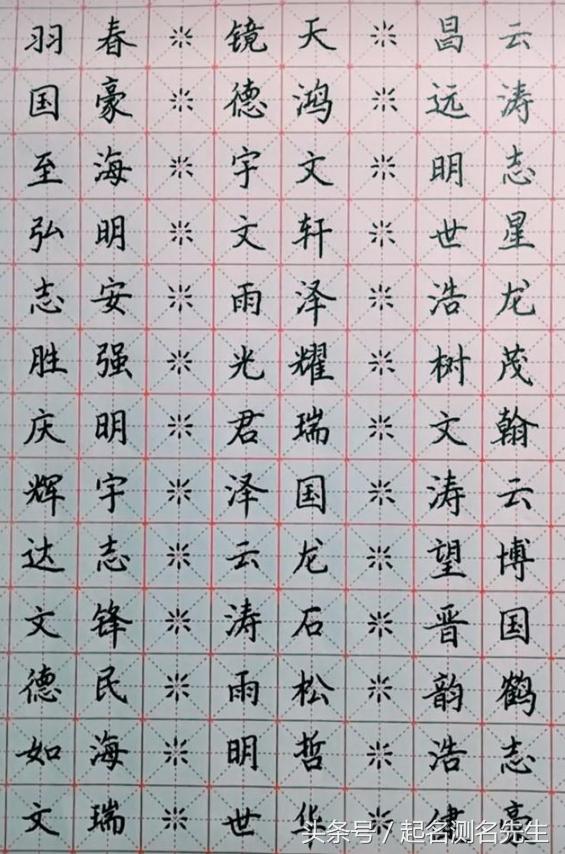 羽 春 ※ 镜 天 ※ 昌 云
国 豪 ※ 德 鸿 ※ 远 涛
至 海 ※ 宇 文 ※ 明 志
弘 明 ※ 文 轩 ※ 世 星
志 安 ※ 雨 泽 ※ 浩 龙
胜 强 ※ 光 耀 ※ 树 茂
庆 明 ※ 君 瑞 ※ 文 翰
辉 宇 ※ 泽 国 ※ 涛 云
达 志 ※ 云 龙 ※ 望 博
文 锋 ※ 涛 石 ※ 晋 国
德 民 ※ 雨 松 ※ 韵 鹤
如 海 ※ 明 哲 ※ 浩 志
文 瑞 ※ 世 华 ※ 亮
头条号 / 起名测名先生